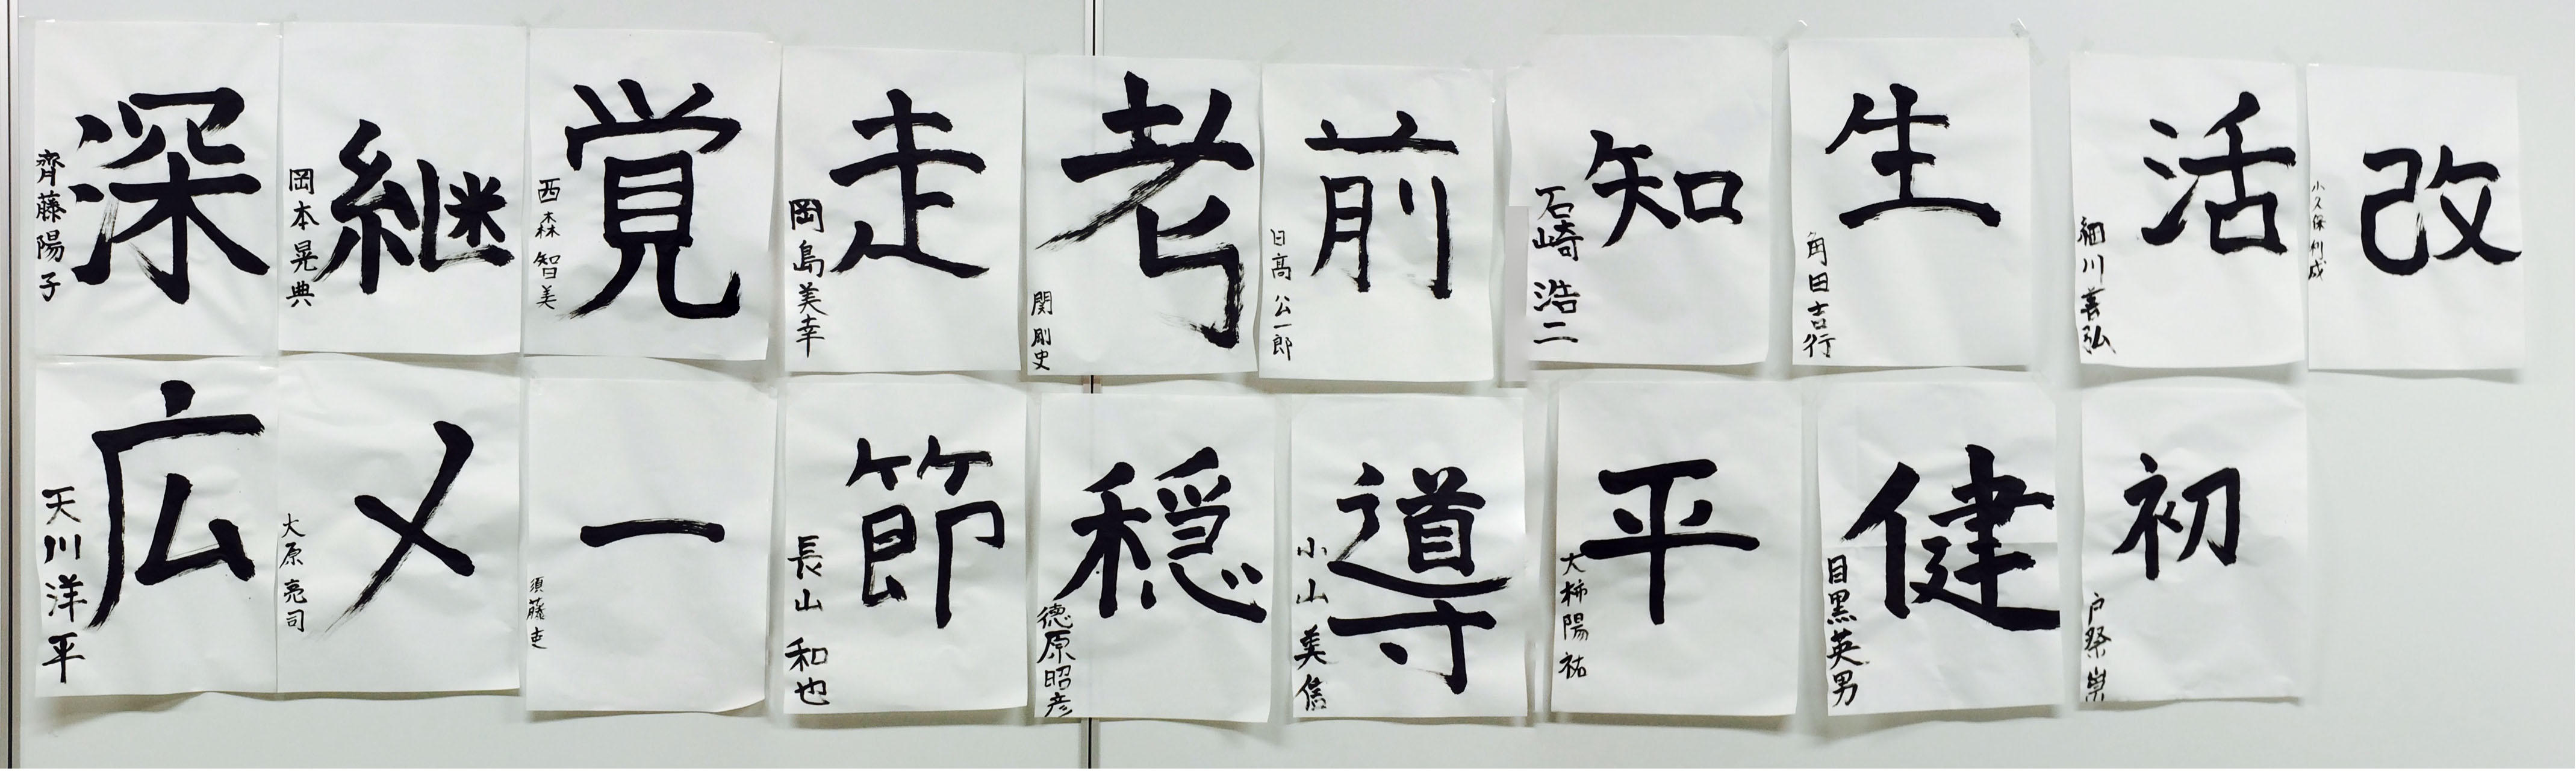 深
齊藤陽子
継
岡本晃典
覚
西森智美
走
岡島美幸
老
関剛史
前
日高公一郎
知
石崎浩二
生
角田吉行
活
細川善弘
改
小久保利成
広
天川洋平
乂
大原亮司
一
須藤
節
長山和也
穏
徳原昭彦
導
小山美信
平
大柿陽祐
健
目黒英男
初
戸祭